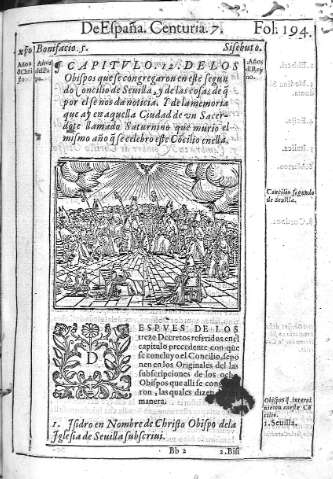 De España. Centuria. 7. Fol. 194.
xp̃o Bonifacio. 5. Sisebuto.
CAPITVLO. 12. DE LOS
Obispos que se congregaron en este segun
do Concilio de Sevilla, y de las cosas de q̃
por el se nos da noticia. Y de la memoria
que ay en aquella Ciudad de un Sacer-
dote llamado Saturnino que murio el
mismo año q̃ se celebro este Cõcilio en ella.
Concilio segundo
de Sevilla.
DESPVES DE LOS
treze Decretos referidos en el
capitulo precedente con que
se concluyo el Concilio, se po
nen en los Originales del las
subscripciones de los ocho
Obispos que alli se congre
ron, las quales dizen
manera.
1. Isidro en Nombre de Christo Obispo de la
Iglesia de Sevilla subscrivi.
1. Sevilla.
Bb 2 2. Bisi